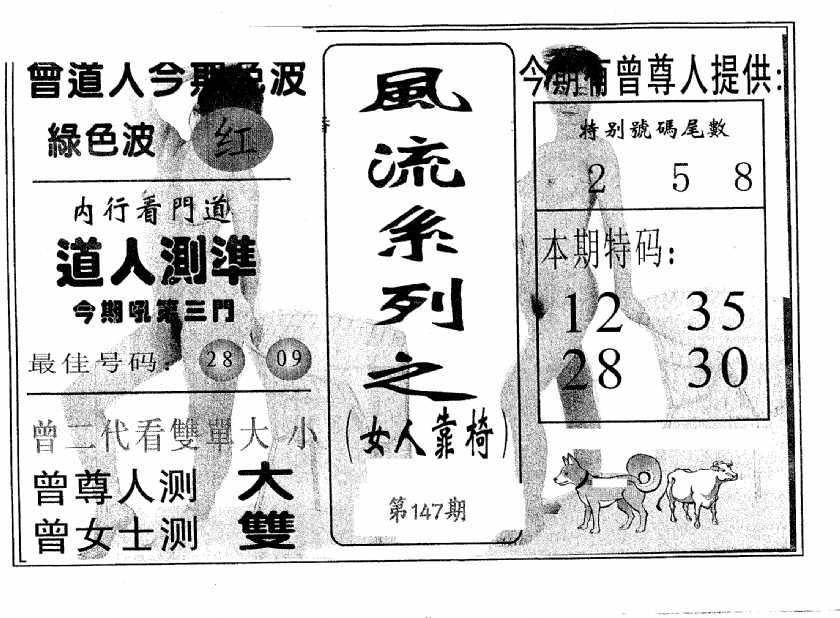 曾道人今期色波
綠色波 红
内行看門道
道人測準
今期吼第三門
最佳号码: 28 09
曾二代看雙單大小
曾尊人测 大
曾女士测 雙
風流系列之
(女人靠椅)
第147期
今期有曾尊人提供:
特别號碼尾數
2 5 8
本期特码:
12 35
28 30